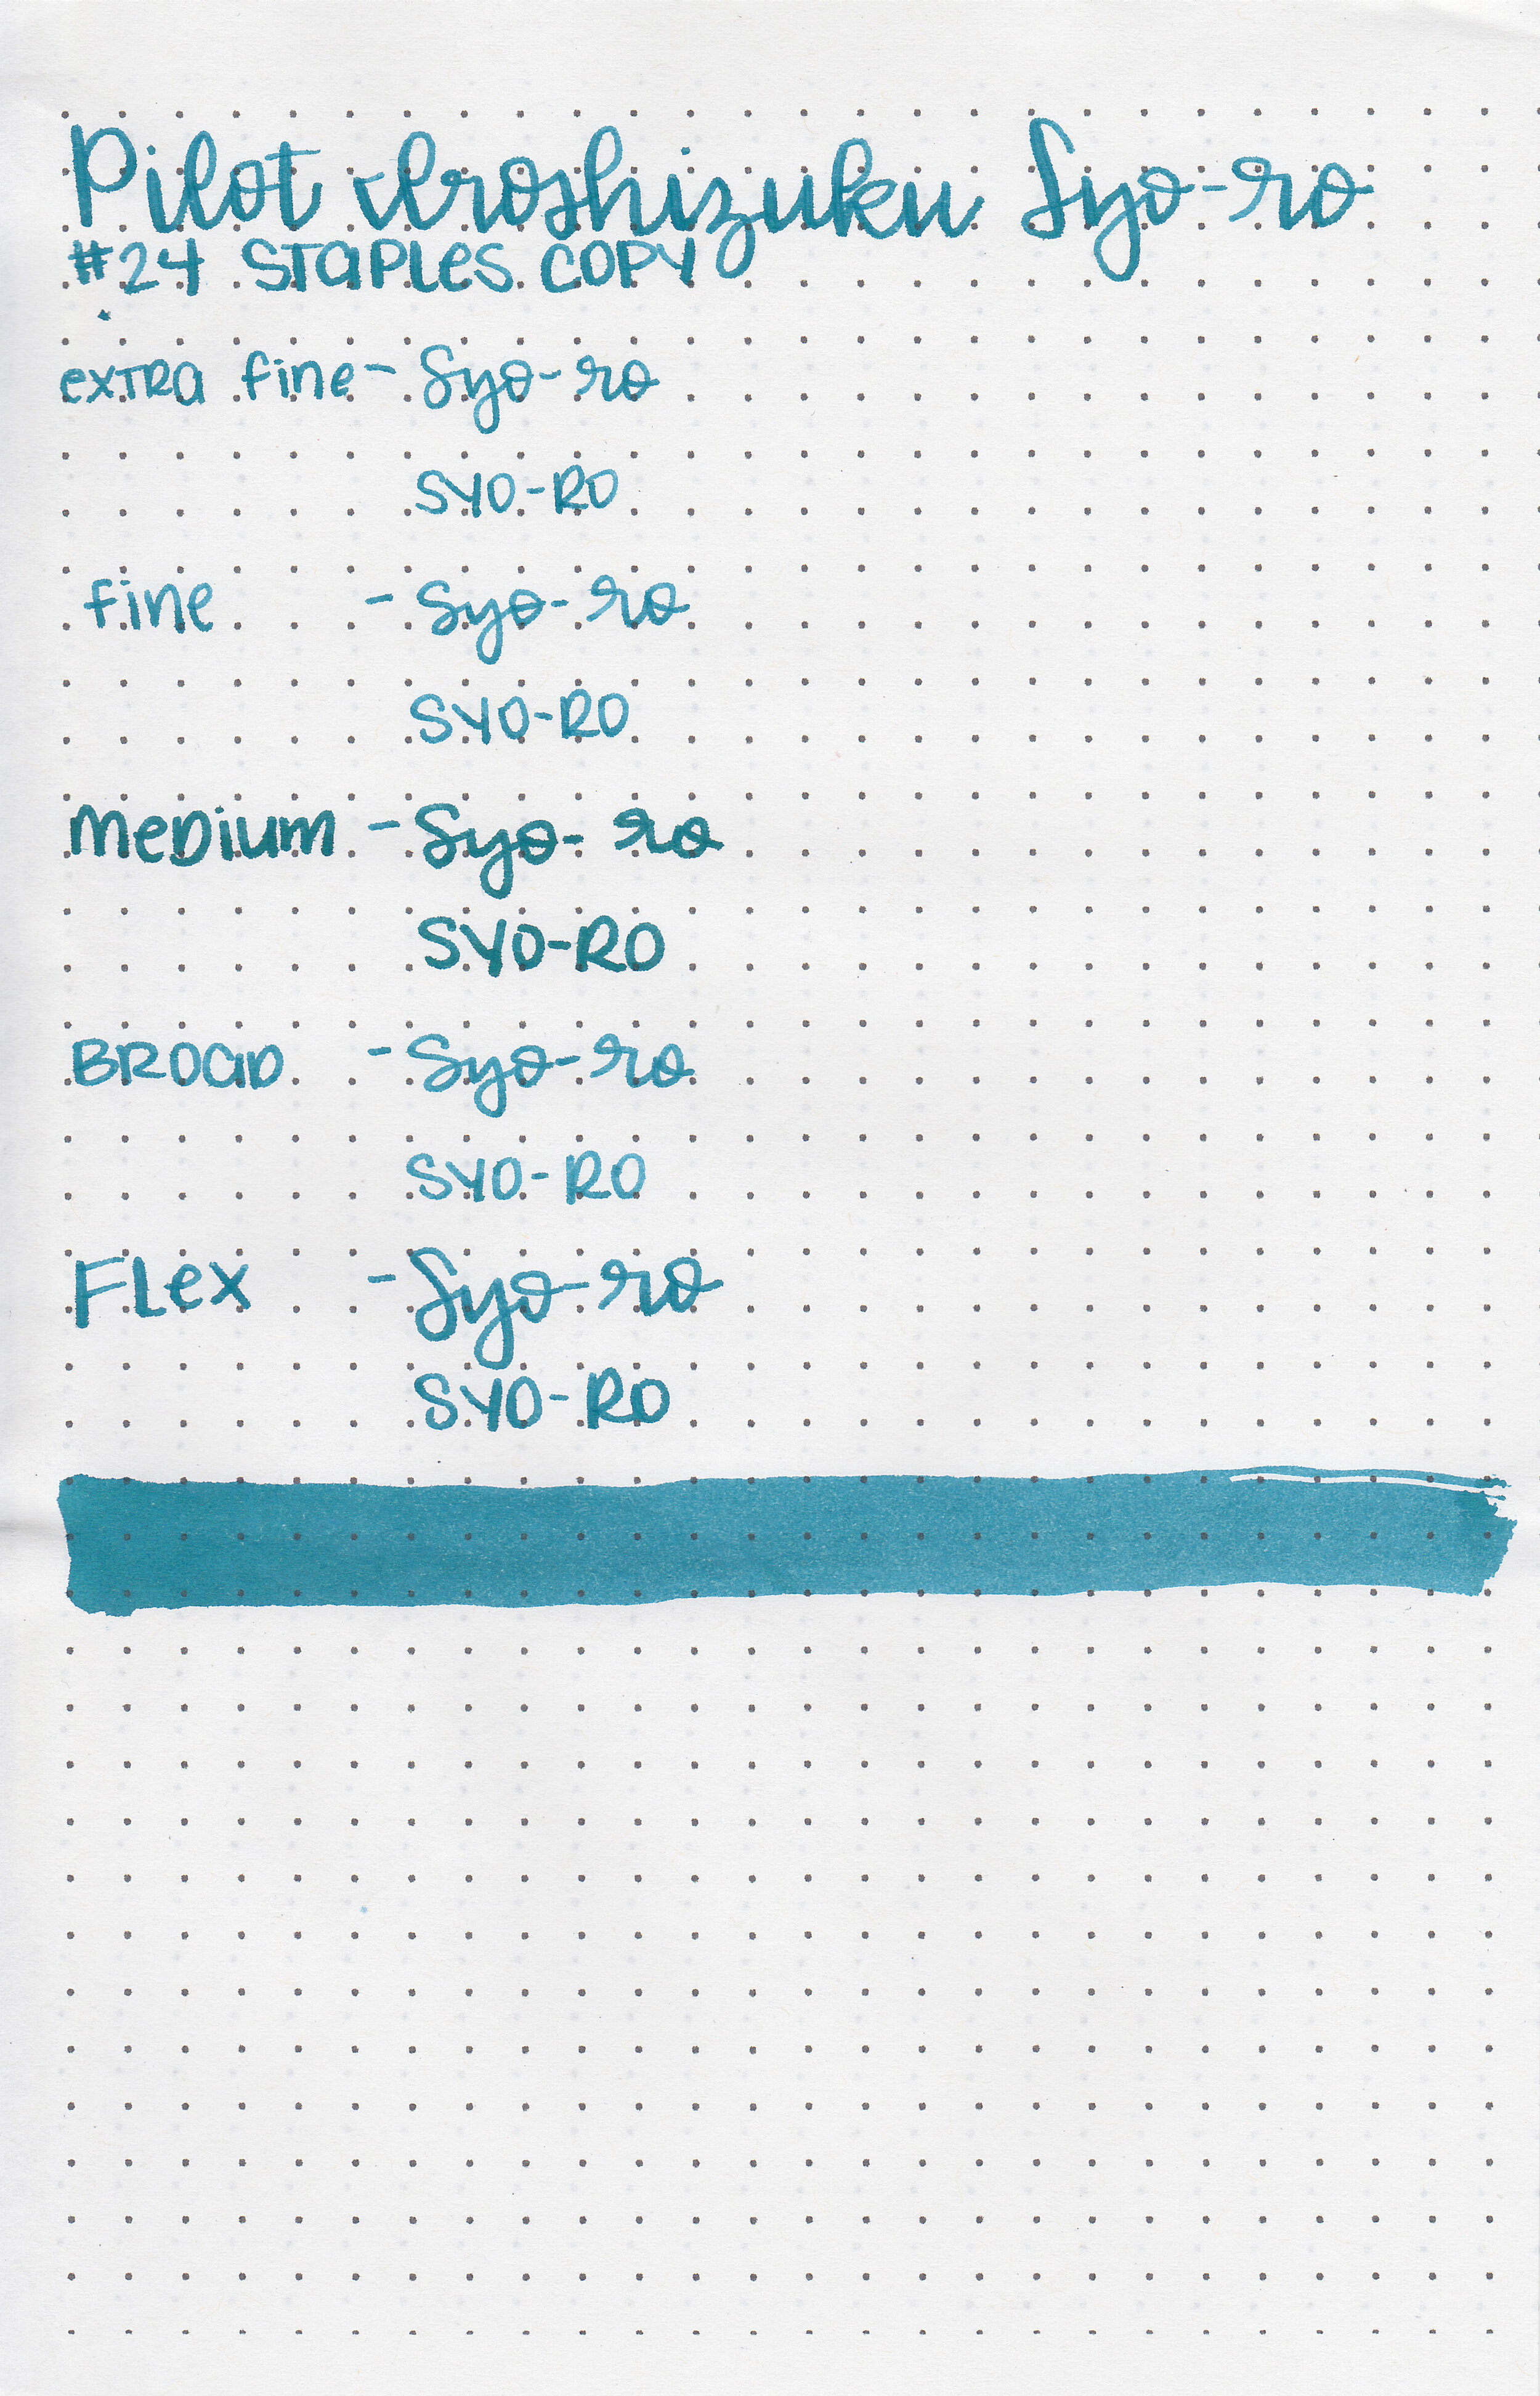 Pilot Iroshizuku Syo-ro
#24 STAPLES COPY
extra fine - Syo-ro
SYO-RO
fine - Syo-ro
SYO-RO
Medium - Syo-ro
SYO-RO
BROAD - Syo-ro
SYO-RO
Flex - Syo-ro
SYO-RO